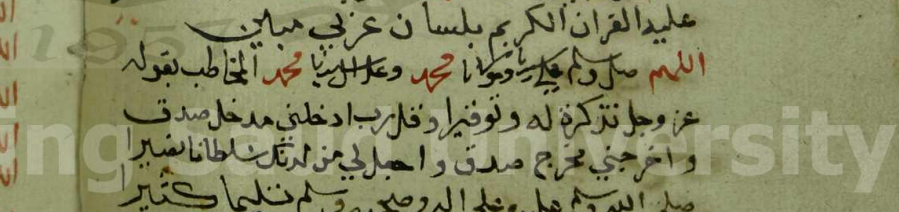 عليه القران الكريم بلسان عربي مبين
اللهم صل وسلم على سيدنا ومولانا محمد وعلى ال سيدنا محمد المخاطب بقوله
عز وجل تذكرة له وتوقيرا وقل رب ادخلني مدخل صدق
واخرجني مخرج صدق واجعل لي من لدنك سلطانا نصيرا
صلى الله وسلم عليه وعلى اله وصحبه وسلم تسليما كثيرا